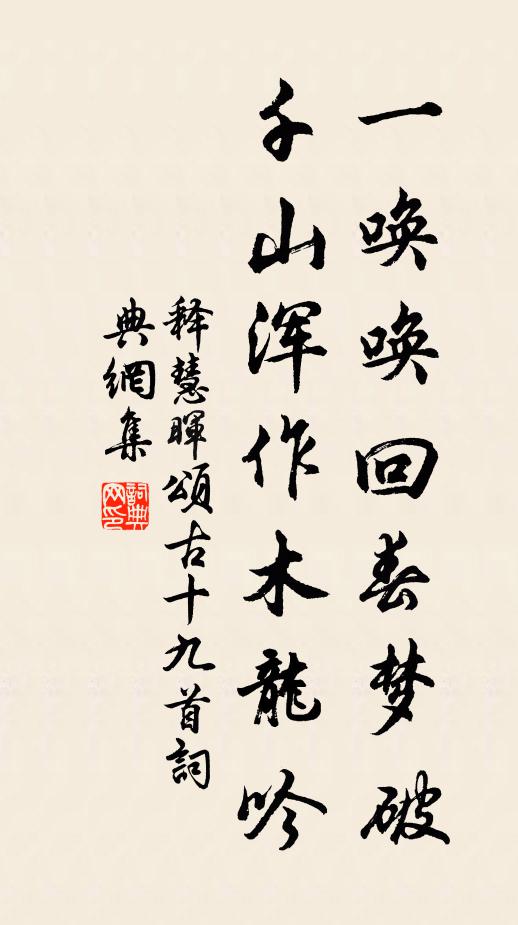 一唤唤回春梦破
千山浑作木龍吟
释慧暉頌古十九首詞
典網集
詞典网印